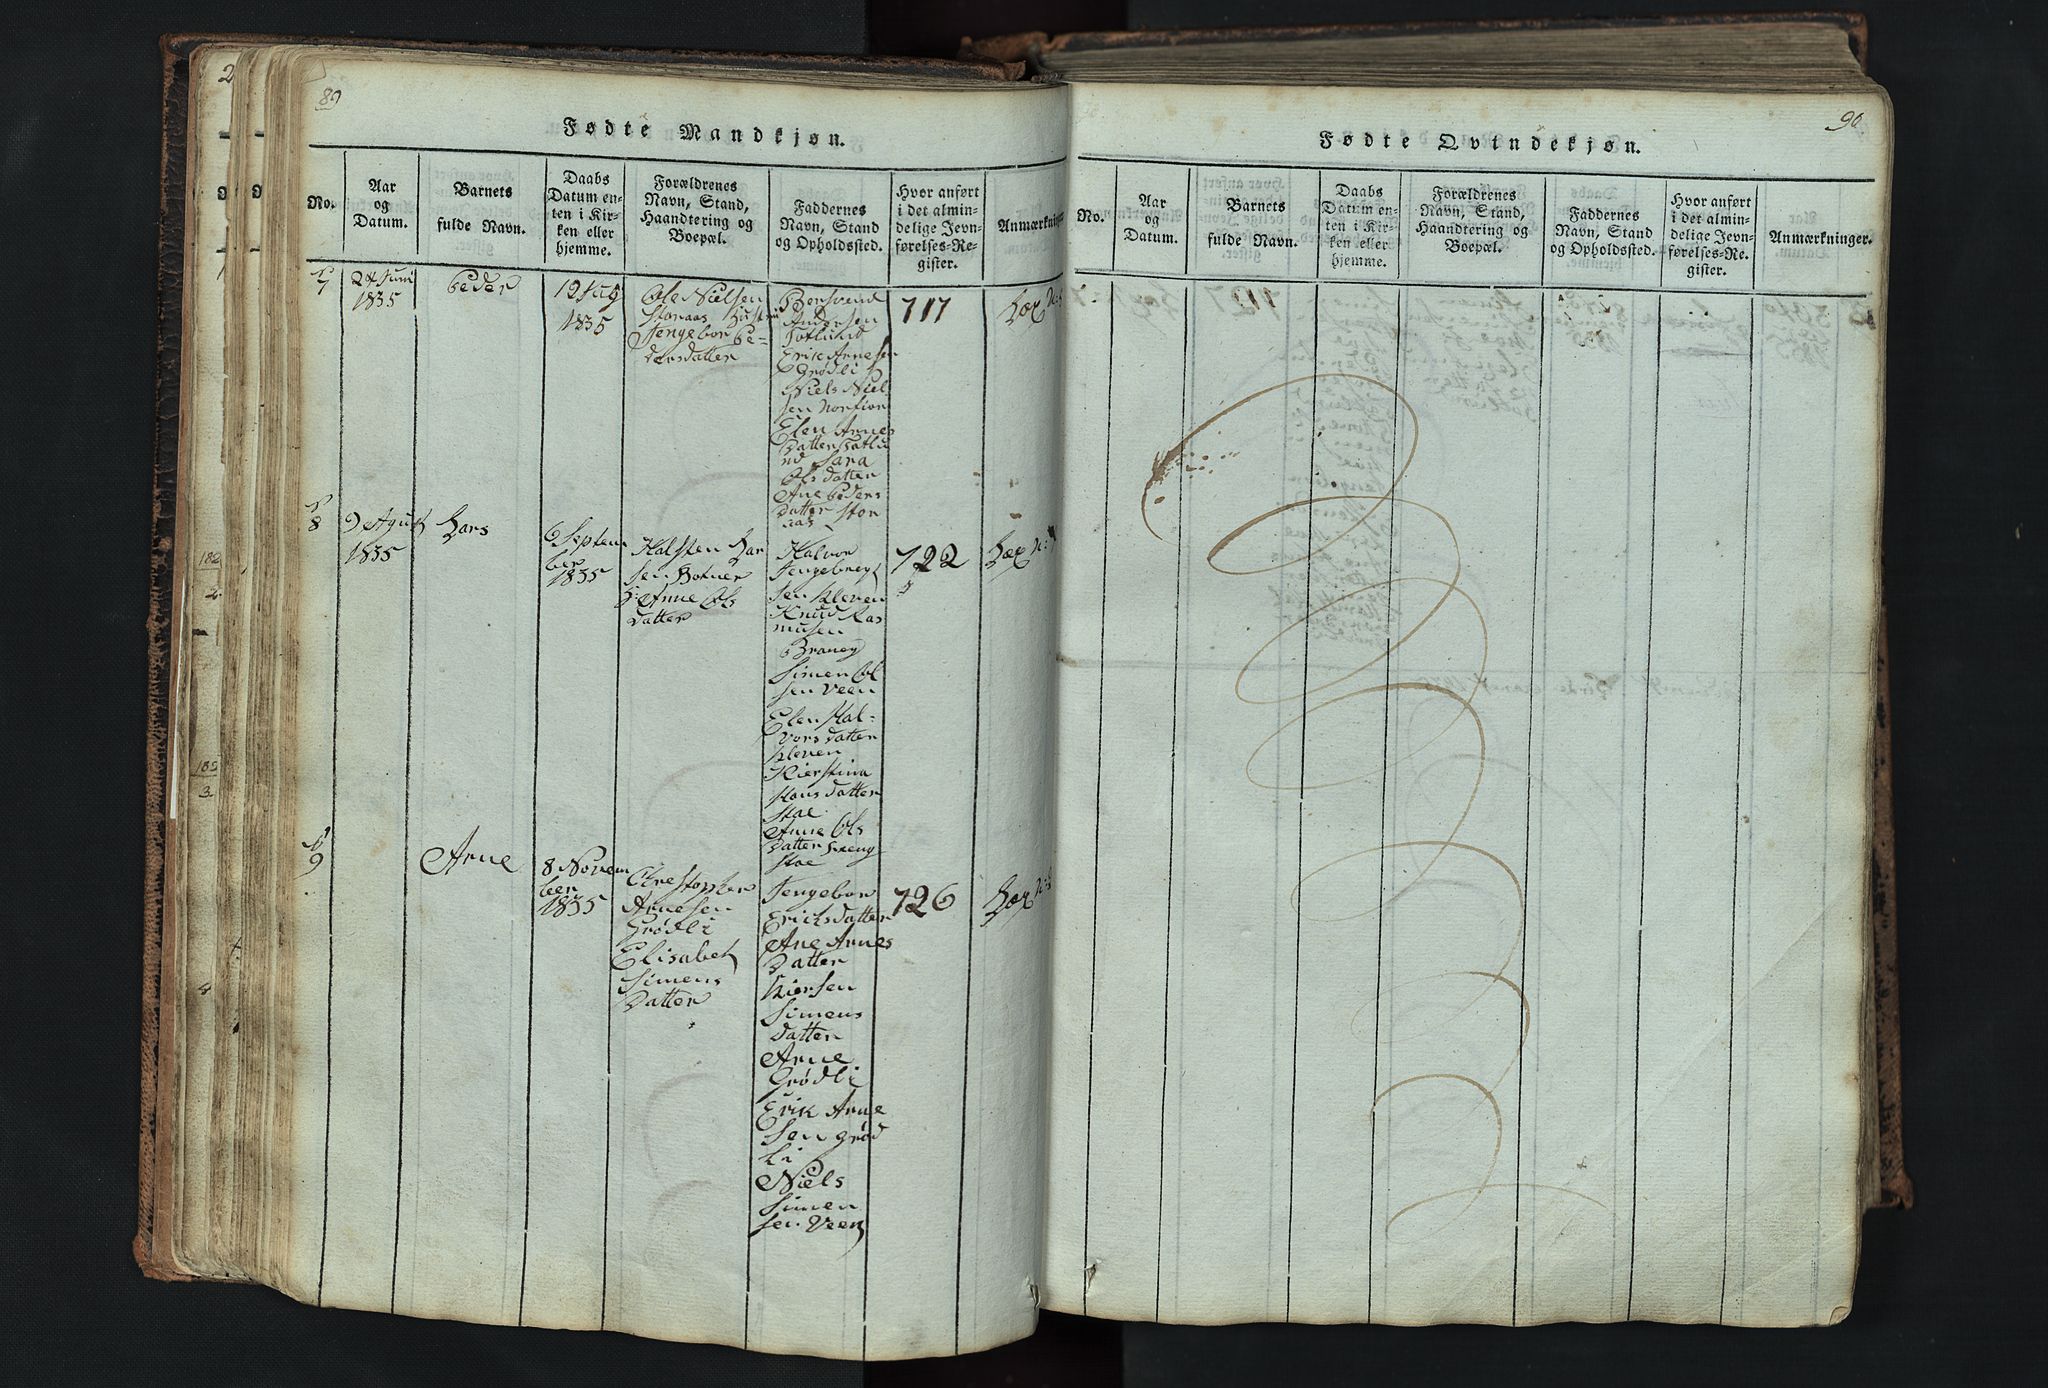 89
Fødte Mandkjøn.
No.
Aar
og
Datum.
Barnets
fulde Navn.
Daabs
Datum en-
ten i Kir-
ken eller
hjemme.
Forældrenes
Navn, Stand,
Haandtering og
Boepæl.
Faddernes
Navn, Stand
og Opholdssted.
Hvor anført
i det almin-
delige Jevn-
førelses-Re-
gister.
Anmærkninger
7
24 Juni
1835
Peder
1835
Ole Nielsen
Storaas Hustru
Jengebor Pe-
dersdatter
Bersvend
Andersen
Erik Arnesen
Grødli
Niels Niel
sen
Elen Arnes
Datter
Sara
Ols datter
Ane Peders
datter Stor
aas
717
8
9 Agust
1835
Lars
6 Septem
ber
1835
Halsten Lar
sen
H: Anne Ols
datter
Halvor
Jengebregt
sen Kleven
Knud Ras
musen
Simen Ol
sen Veen
Elen Hal-
vorsdatter
Kleven
Kierstina
Hansdatter
Anne Ols
datter
722
9
Arne
8 Novem
ber
1835
Christopher
Arnesen
Grødli
Elisabet
Simens
Datter
Jengebor
Ericksdatter
Ane Arnes
Datter
Kiersen
Simens
datter
Arne
Grødli
Erik Arne
sen Grød
li
Niels
Simen
sen Veen
726
90
Fødte Qvindekjøn.
No.
Aar
og
Datum.
Barnets
fulde Navn.
Daabs
Datum en-
ten i Kir-
ken eller
hjemme.
Forældrenes
Navn, Stand,
Haandtering og
Boepæl.
Faddernes
Navn, Stand
og Opholdssted.
Hvor anført
i det almin-
delige Jevn-
førelses-Re-
gister.
Anmærkninger.